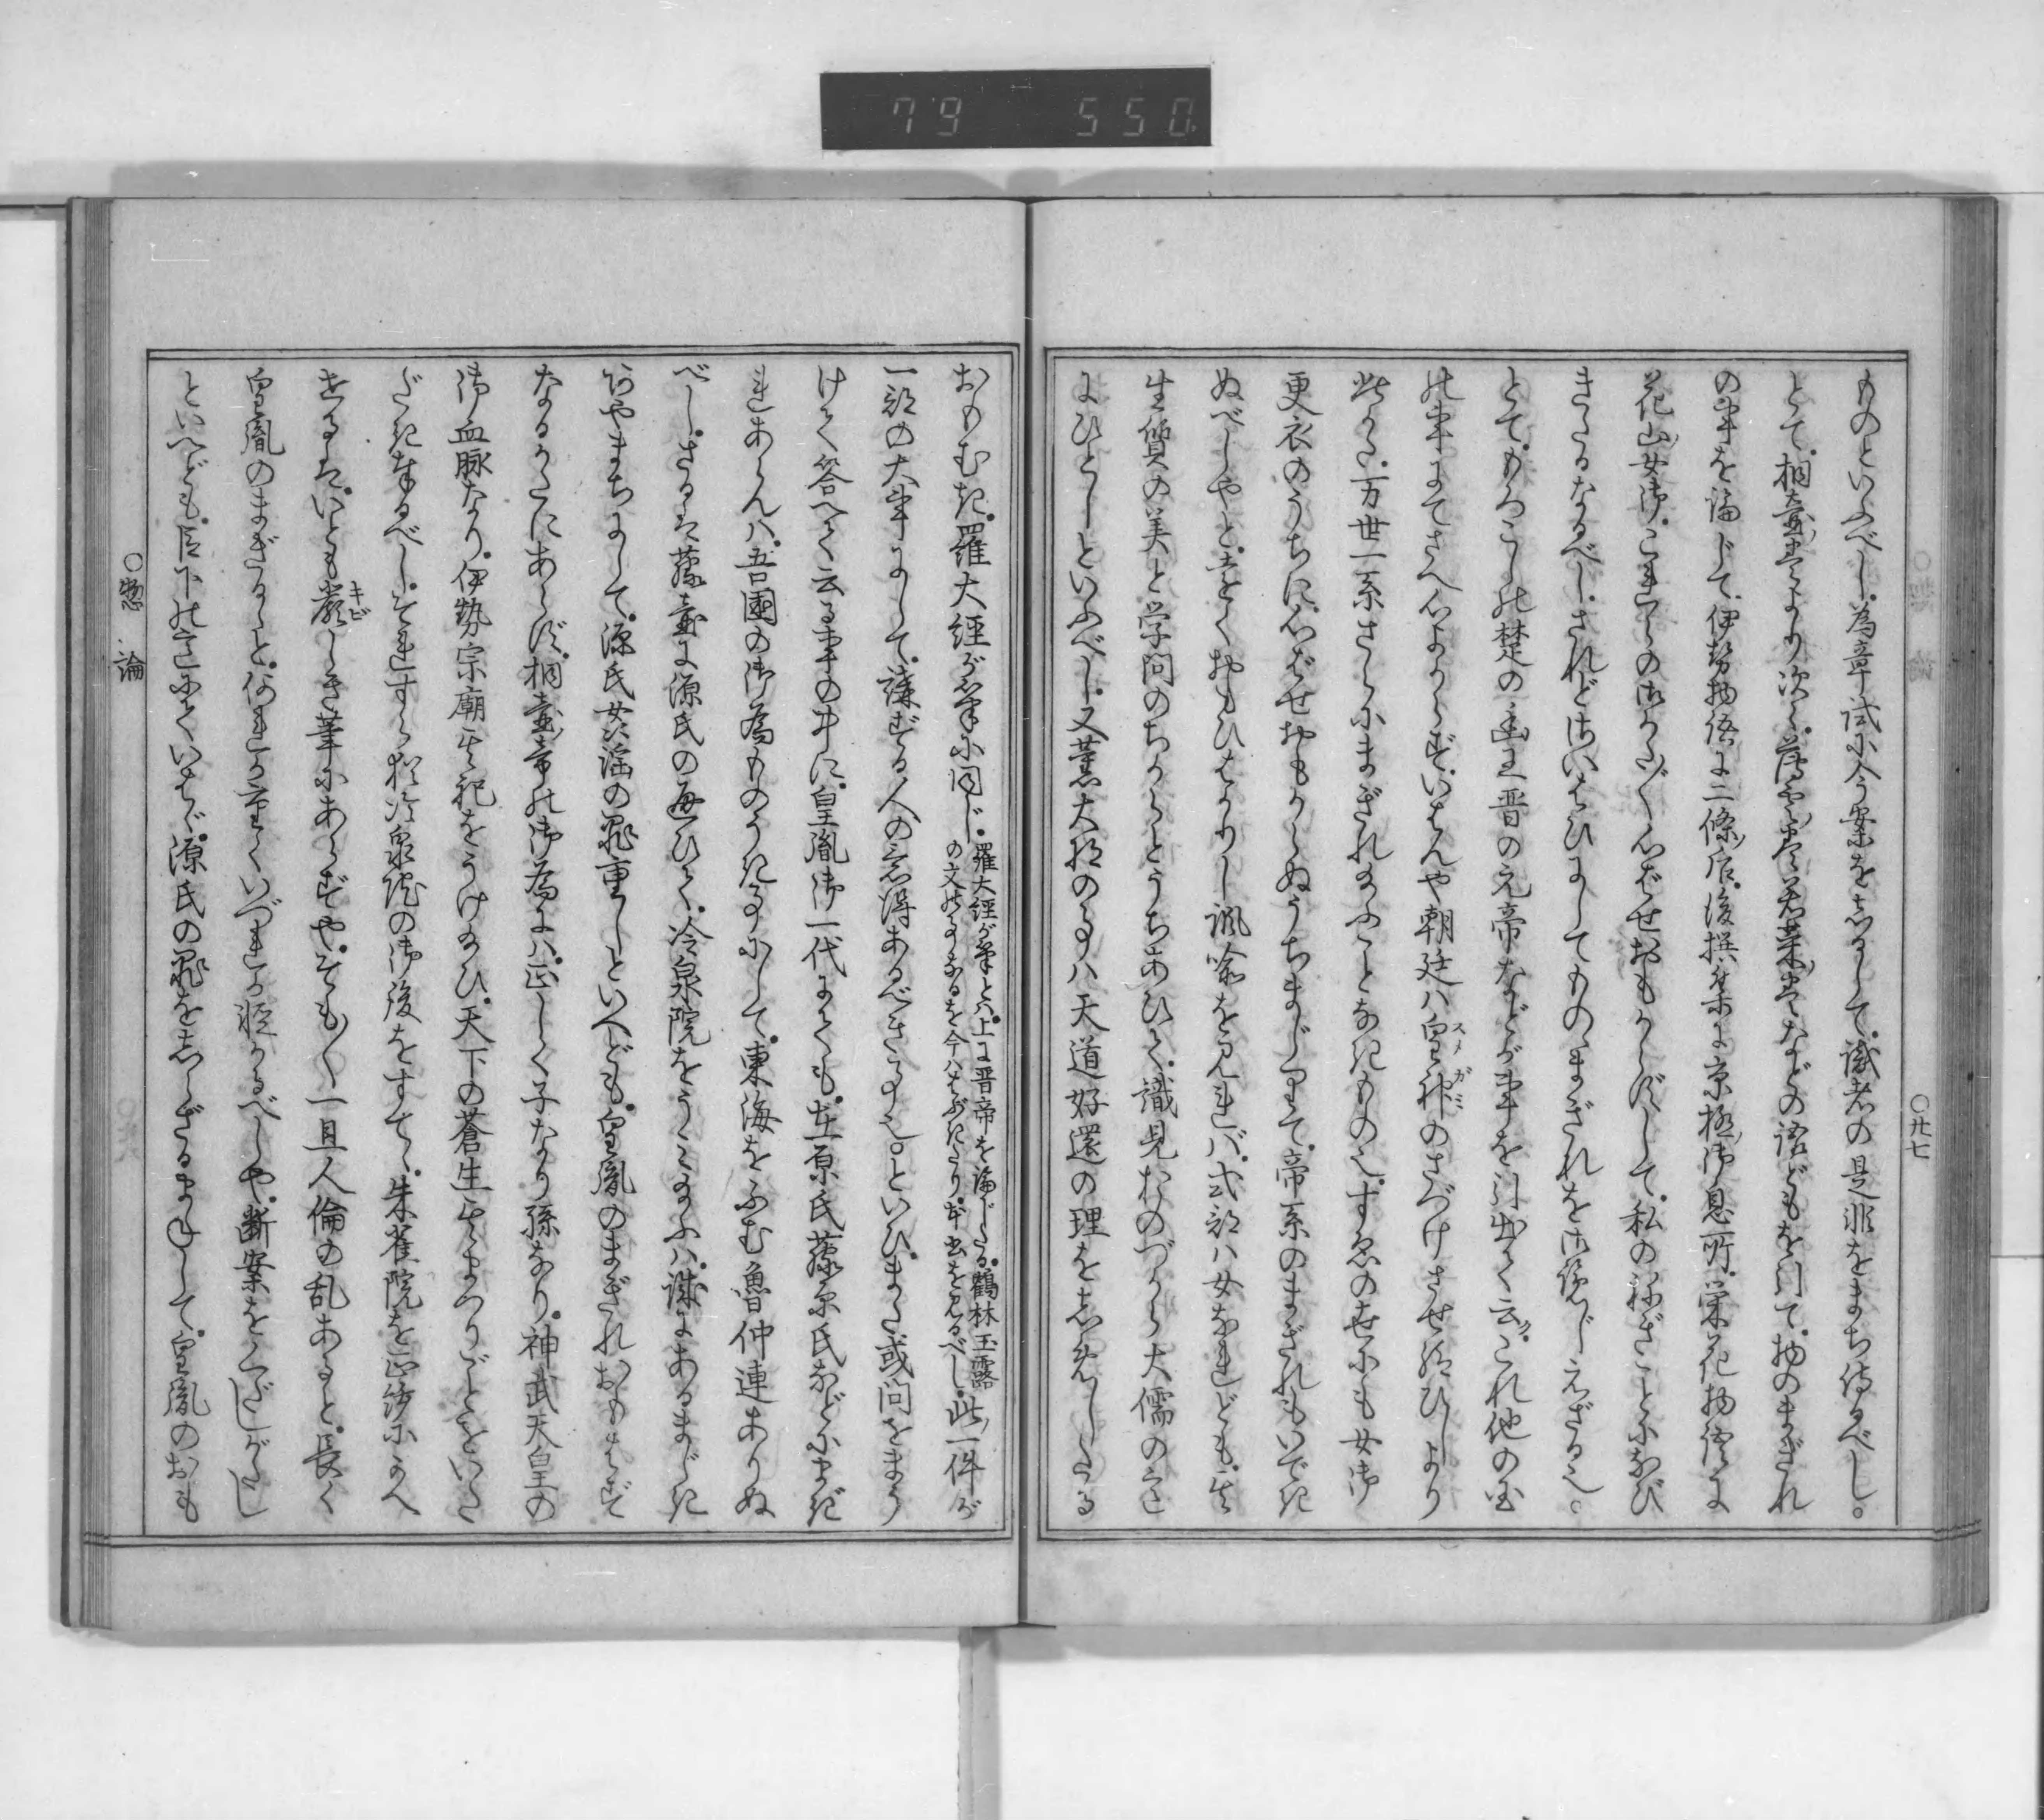 79 550
〇廿七
ものといふべし。為章試に今案をしるして。識者の是非をまち侍るべし。
とて。桐壺巻より次々。薄雲巻若菜巻などの語どもを引て。物のまぎれ
の事を論じて。伊勢物語に二條后。後撰集に京極御息所。栄花物語に
花山女御。これらの御かた〴〵心ばせおもからずして。私のねざことになび
きたるなるべし。されど御いはひにしてもののまぎれを御覧じえざる也。
とて。もろこしの楚の幽王晋の元帝などが事を引出て云ク。これ他の国
の事にてさへ心よからず。いはんや朝廷ハ皇神のさづけさせ給ひしより
此かた。万世一系さらにまぎれ給ふことなきもの也。すゑの世にも女御
更衣のうちに。心ばせおもからぬうちまじりて。帝系のまぎれもいでき
ぬべしやと。遠くおもひはかりし諷喩を見れバ。式部ハ女なれども。其
生質の美と学問のちからとうちあひて。識見おのづから大儒の意
にひとしといふべし。又薫大将の事ハ天道好還の理をしめしたる
おもむき。羅大経が筆に同じ。羅大経が筆とハ。上に晋帝を論じたる。鶴林玉露の文の事なるを今ハはぶきたり。本書を見るべし。此一件ガ
一部の大事にして。講ずる人の意得あるべき事也。といひ。また或問をまう
けて答へて云る事の中に。皇胤御一代にても。在原氏藤原氏などにまぎ
れあらんハ。吾國の御為ものうき事にして。東海をふむ魯仲連ありぬ
べし。さるを藤壺に源氏の通ひて。冷泉院をうミ給ふハ。誠にあるまじき
あやまちにして。源氏姦淫の罪重しといへども。皇胤のまぎれおもはず
なるかたにあらず。桐壺帝の御為にハ。正しく子なり孫なり。神武天皇の
御血脉なり。伊勢宗廟其祀をうけ給ひ。天下の蒼生其まつりごとをいた
だき奉るべし。それすら猶冷泉院の御後をすてゝ。朱雀院を正統にかへ
せるは。いとも厳キビしき筆にあらずや。そも〳〵一旦人倫の乱あると。長く
皇胤のまぎるゝと。何れか重くいづれか軽かるべしや。断案をくだしがたし
といへども。臣下の意にていはゞ。源氏の罪をしらざるまねして。皇胤のおも
〇惣論